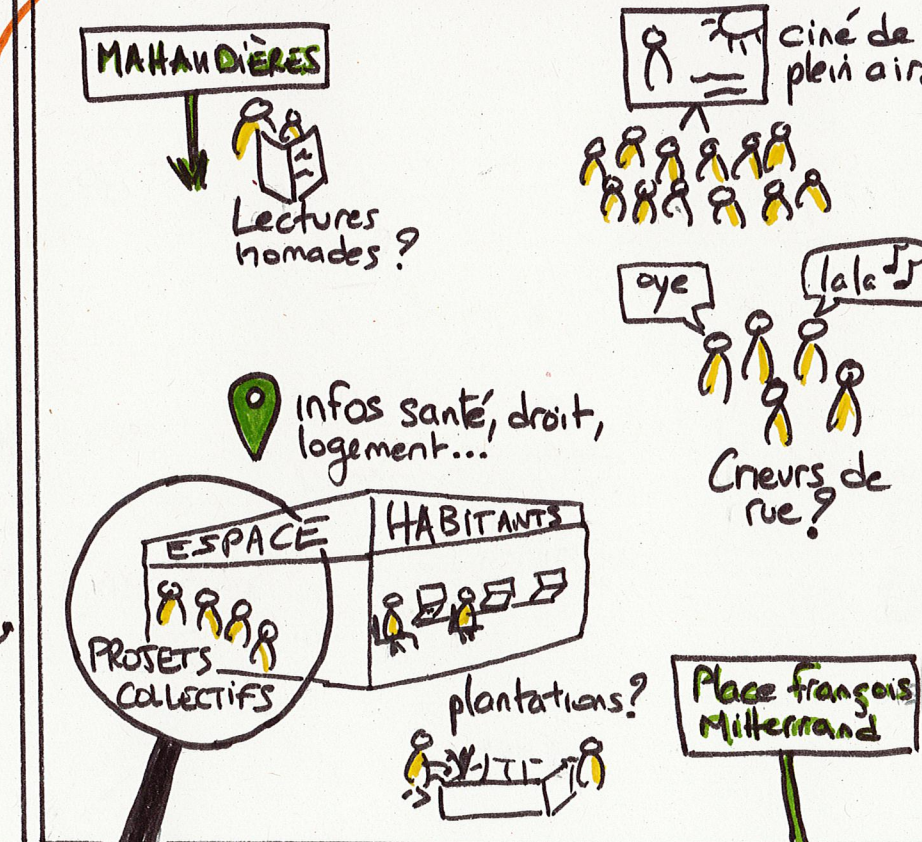 MAHAUDIÈRES
Lectures
nomades ?
ciné de
plein air
oye
lala
Crieurs de
rue ?
infos santé, droit,
logement...
ESPACE
HABITANTS
PROJETS
COLLECTIFS
plantations ?
Place françois
Mitterrand